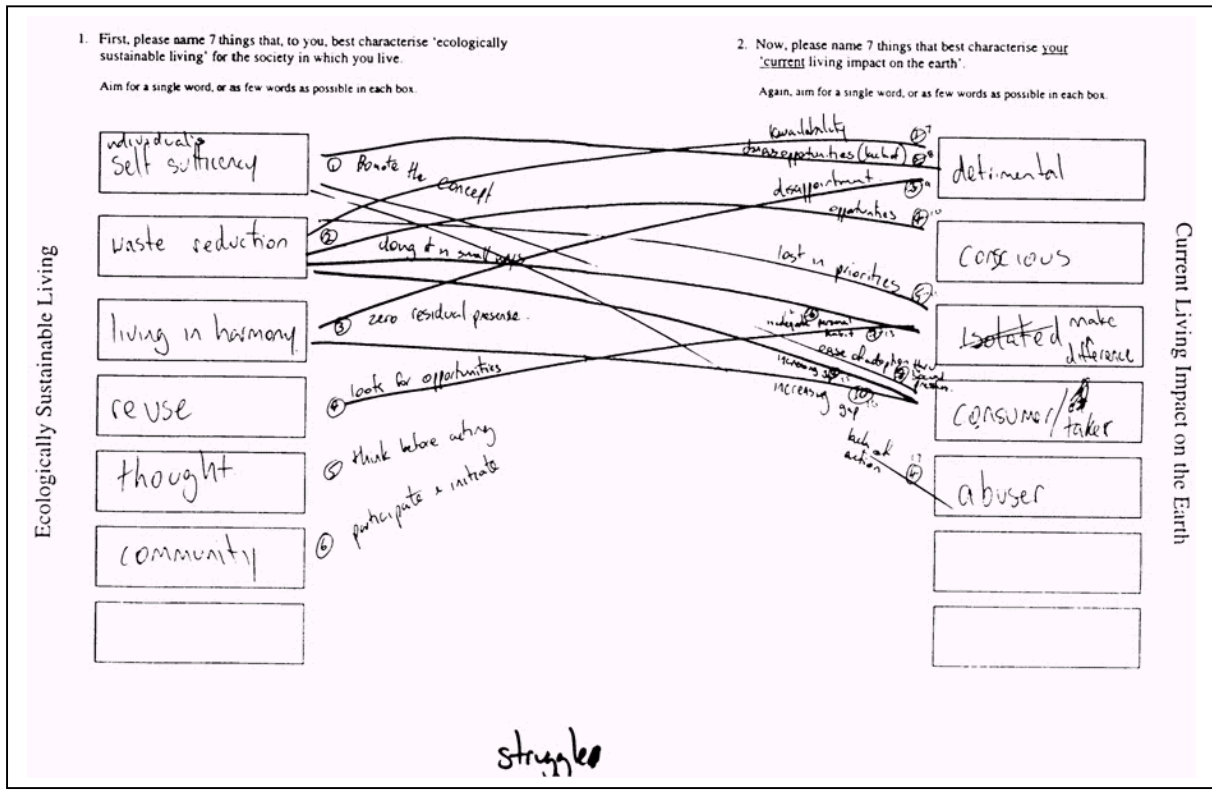 1. First, please name 7 things that, to you, best characterise 'ecologically
sustainable living' for the society in which you live.
Aim for a single word, or as few words as possible in each box.
2. Now, please name 7 things that best characterise your
'current living impact on the earth'.
Again, aim for a single word, or as few words as possible in each box.
Ecologically Sustainable Living
self sufficency
waste reduction
living in harmony
reuse
thought
community
1 the concept
2 doing it in small
3 zero residual presense.
4 look for opportunities
5 think before acting
6 participate & initiate
opportunities (lack of)
disappointment
opportunities
lost in priorities
personal
ease of adoption
increasing
increasing gap
lack of
action
detrimental
conscious
isolated make
difference
consumer/
taker
abuser
Current Living Impact on the Earth
struggle